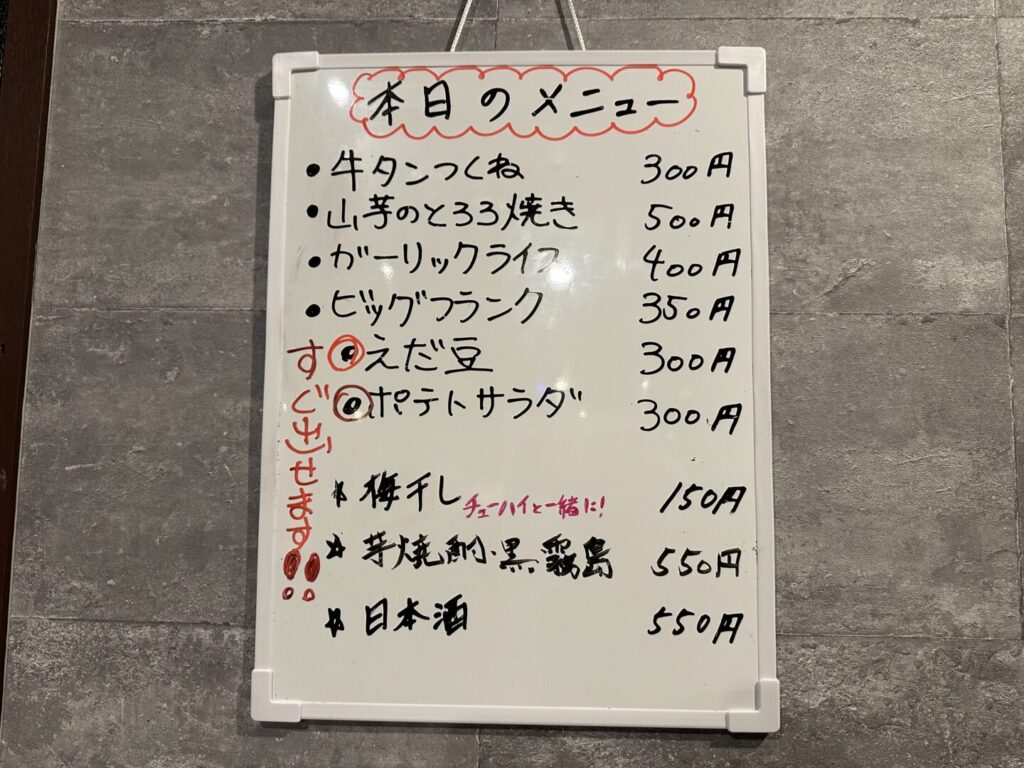 本日のメニュー
・牛タンつくね 300円
・山芋のとろろ焼き 500円
・ガーリックライフ 400円
・ビッグフランク 350円
・えだ豆 300円
・ポテトサラダ 300円
すぐ出せます!!
☆梅干し チューハイと一緒に! 150円
☆芋焼酎・黒霧島 550円
☆日本酒 550円